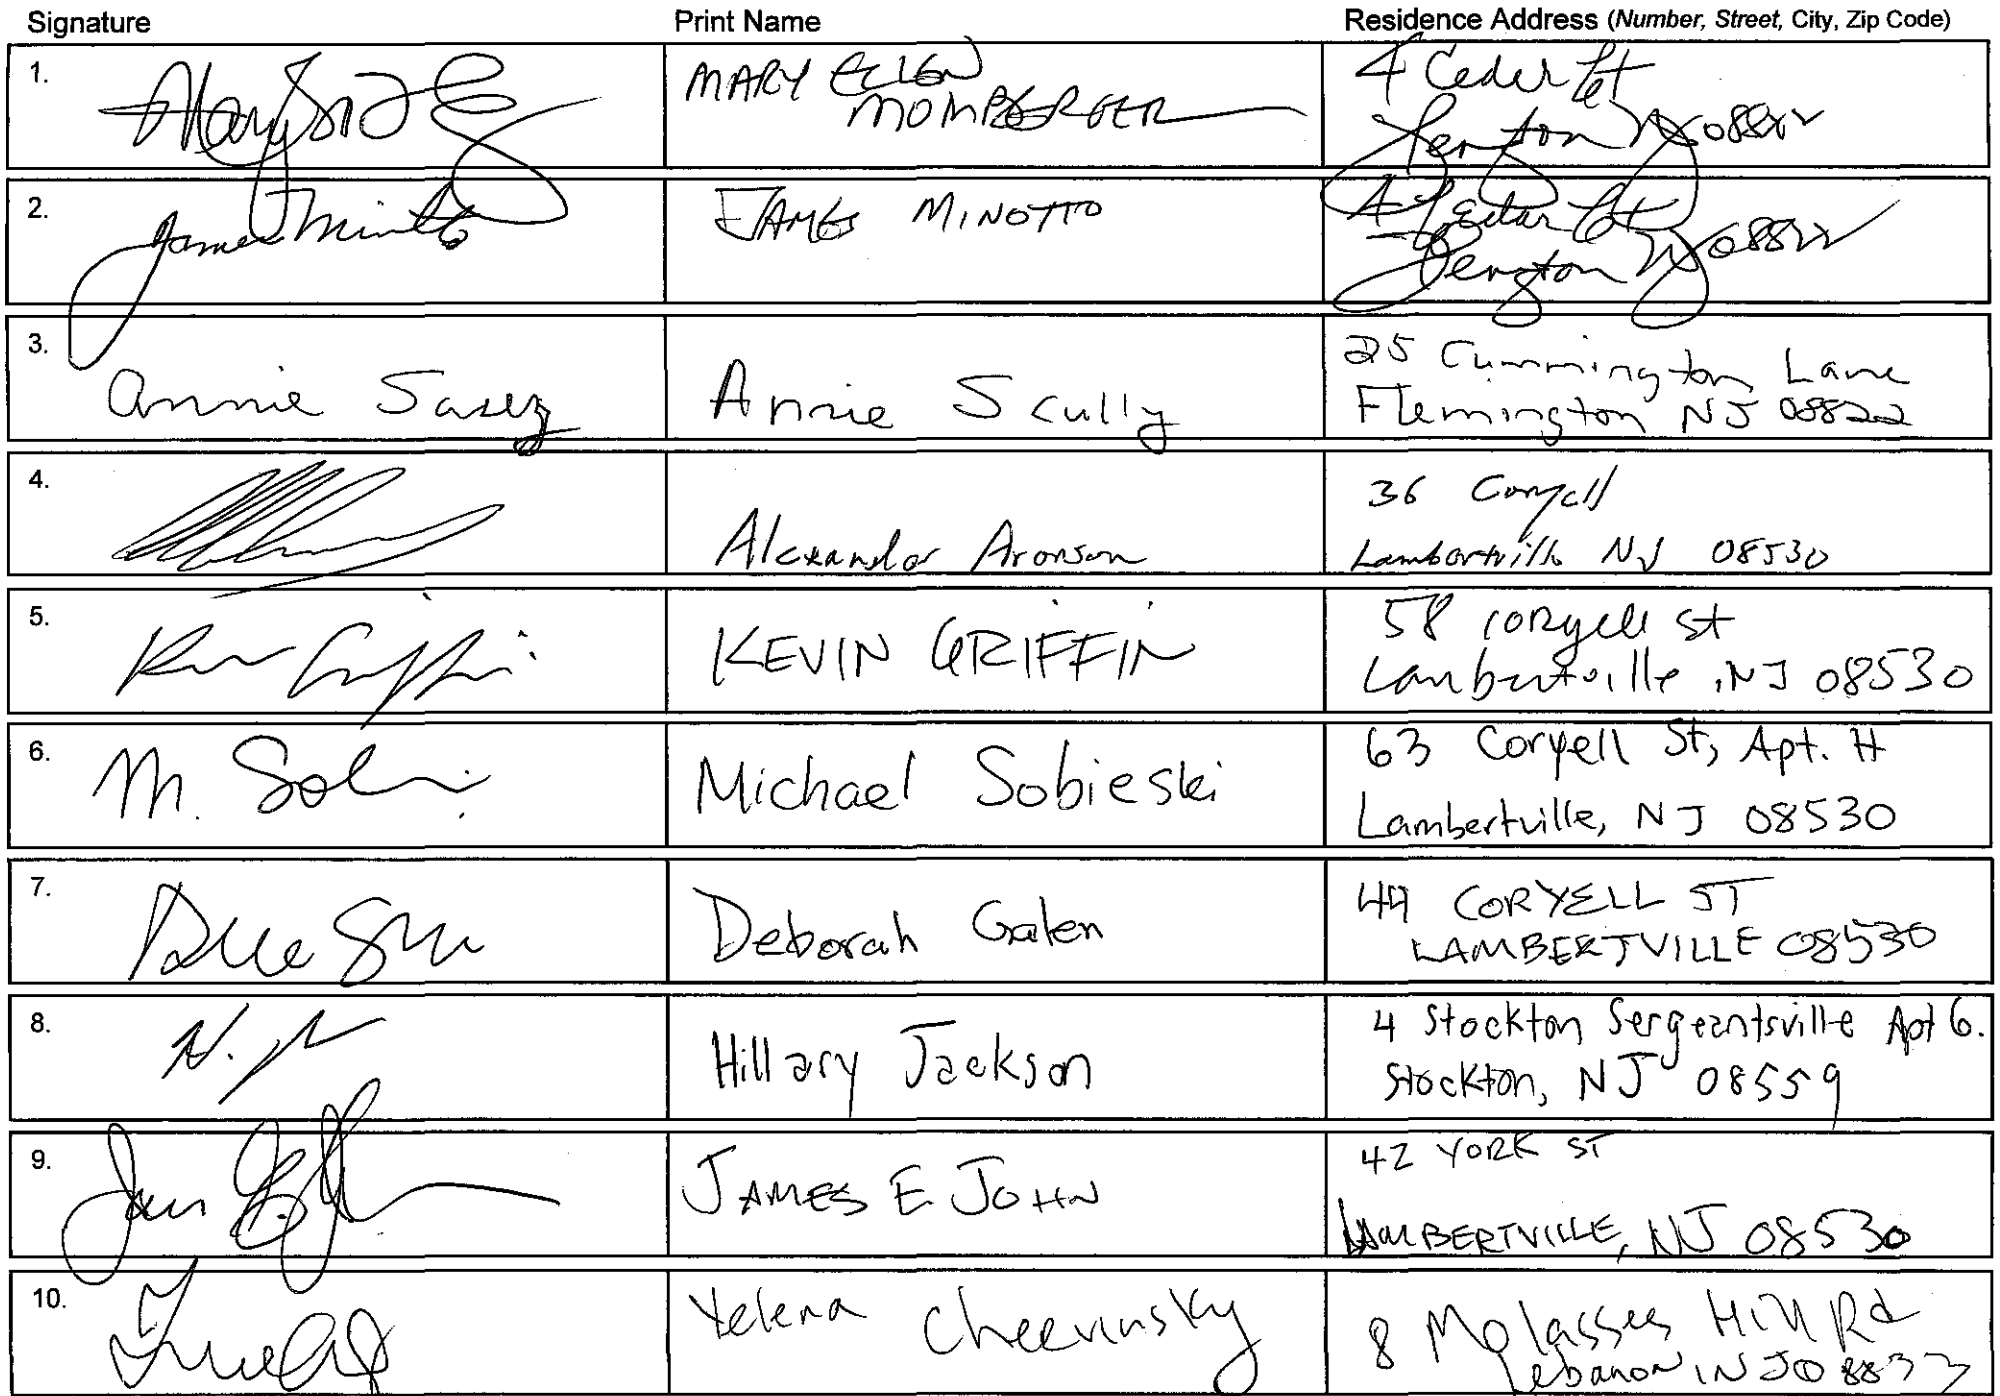 Signature Print Name Residence Address (Number, Street, City, Zip Code)
1. MARY ELLEN MOMBERGER 4 Cedar Ct
NJ 08822
2. James Minotto JAMES MINOTTO 4 Cedar Ct
NJ 08822
3. Annie Annie Scully 25 Cummington Lane
Flemington NJ 08822
4. Alexander Aronson 36 Coryell
Lambertville NJ 08530
5. KEVIN GRIFFIN 58 Coryell St
Lambertville, NJ 08530
6. M. Michael Sobieski 63 Coryell St, Apt. H
Lambertville, NJ 08530
7. Deborah Galen 44 CORYELL ST
LAMBERTVILLE 08530
8. Hillary Jackson 4 Stockton Sergeantsville Apt 6.
Stockton, NJ 08559
9. JAMES E. JOHN 42 YORK ST
LAMBERTVILLE, NJ 08530
10. Yelena Cheevinsky 8 Molasses Hill Rd
Lebanon NJ 08833